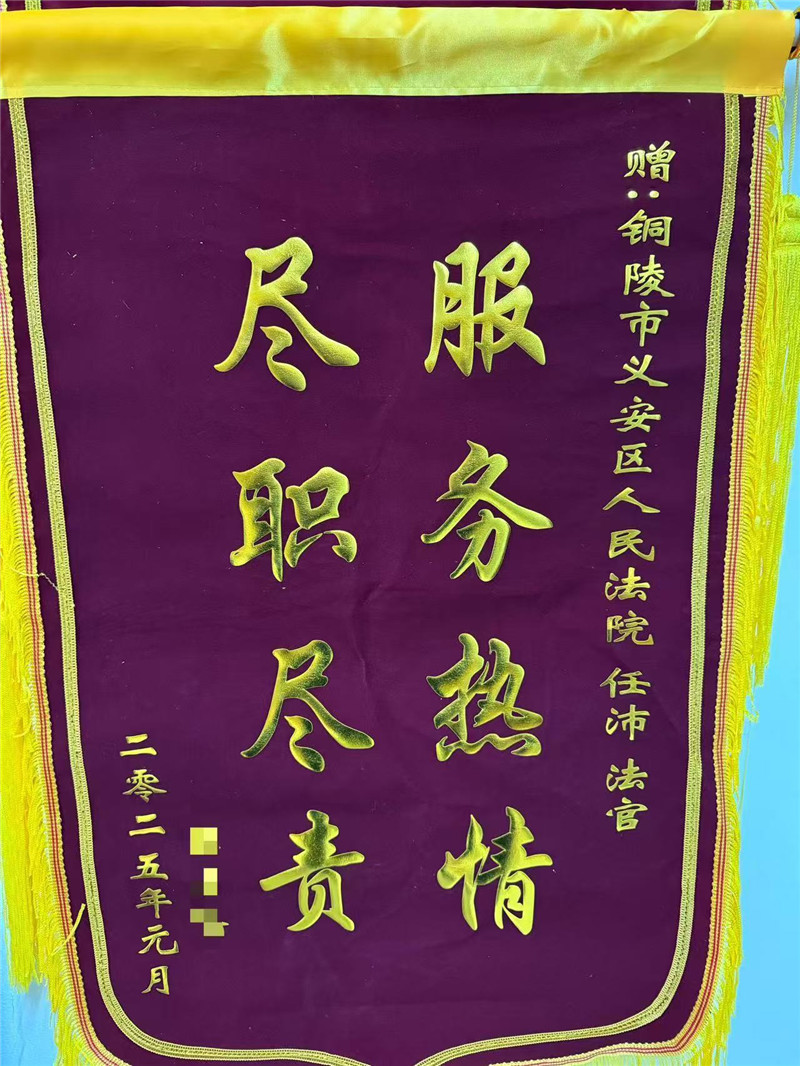 赠：铜陵市义安区人民法院 任沛 法官
服务热情
尽职尽责
二零二五年元月